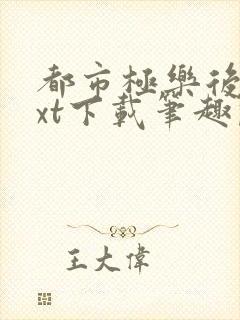 都市極樂後
xt下載筆趣
王大偉